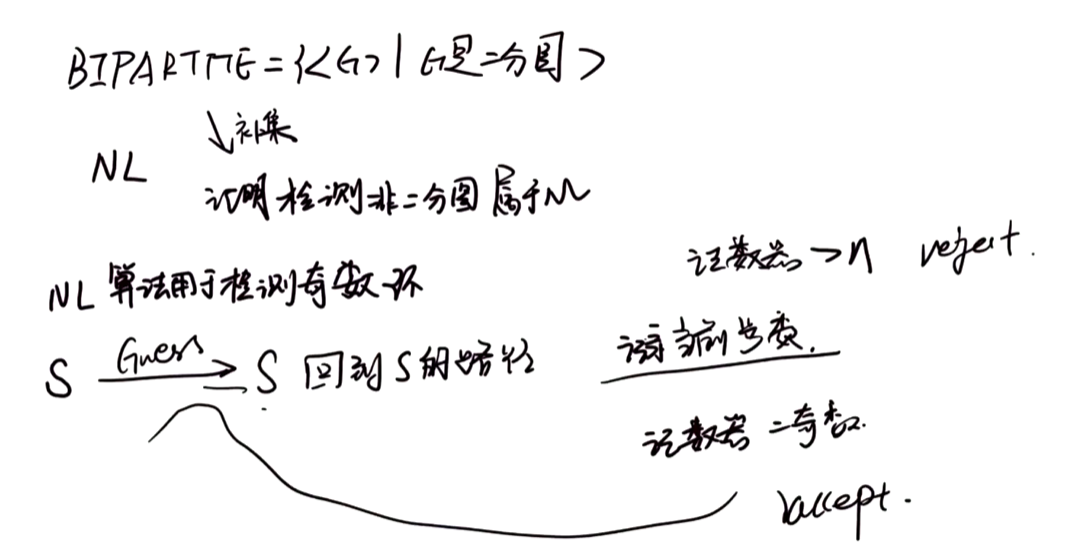 BIPARTITE = {<G> | G是二分图>
↓补集
NL
证明检测非二分图属于NL
计数器 > n reject.
NL 算法用于检测奇数环
S Guess → S 回到S的路径
当前步数.
计数器 = 奇数.
accept.